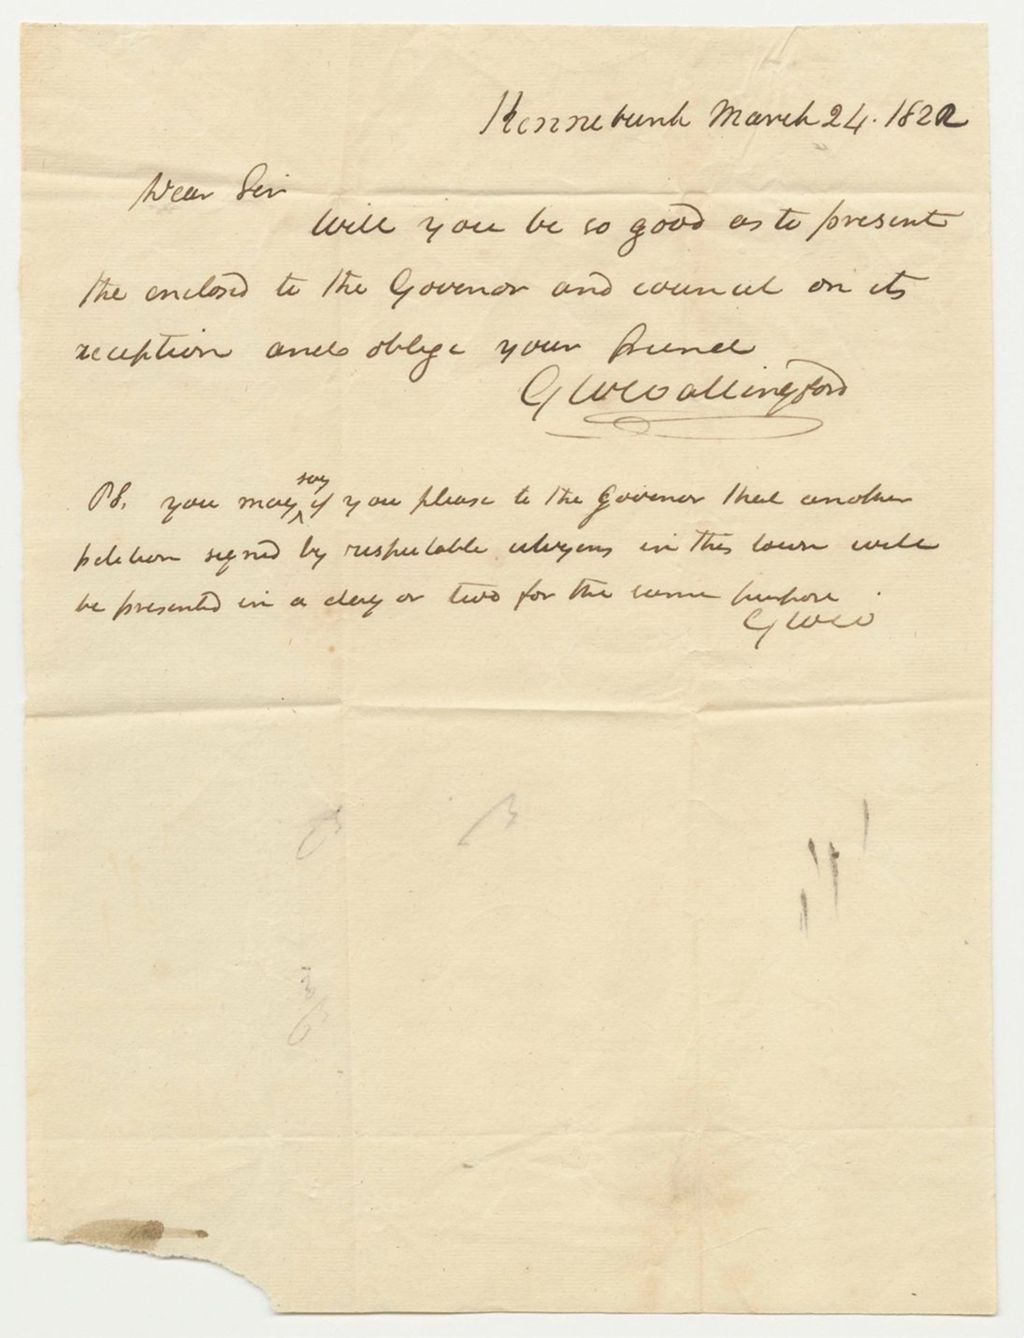 Kennebunk March 24. 1822
Dear Sir
Will you be so good as to present
the enclosed to the Governor and council on its
reception and oblige your friend
G W Wallingford
PS. you may say if you please to the Governor that another
petition signed by respectable citizens in this town will
be presented in a day or two for the same purpose.
G W W